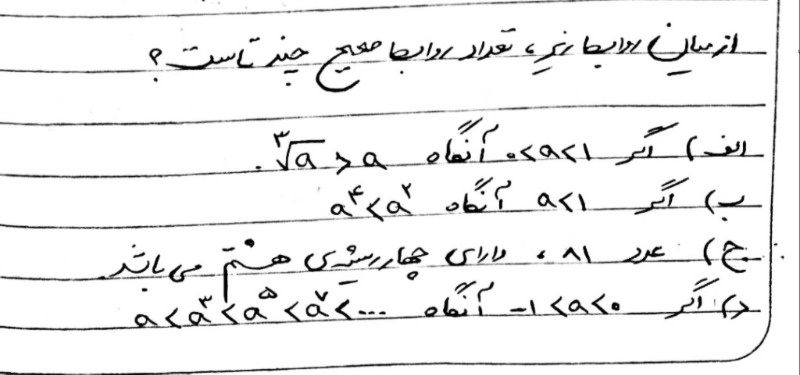 از میان روابط زیر، تعداد روابط صحیح چند تاست؟
الف) اگر 0<a<1 آنگاه ∛a > a.
ب) اگر a<1 آنگاه a⁴<a²
ج) عدد ۸۱، دارای چهار ریشه‌ی هشتم می باشد.
د) اگر -1<a<0 آنگاه a<a³<a⁵<a⁷<...